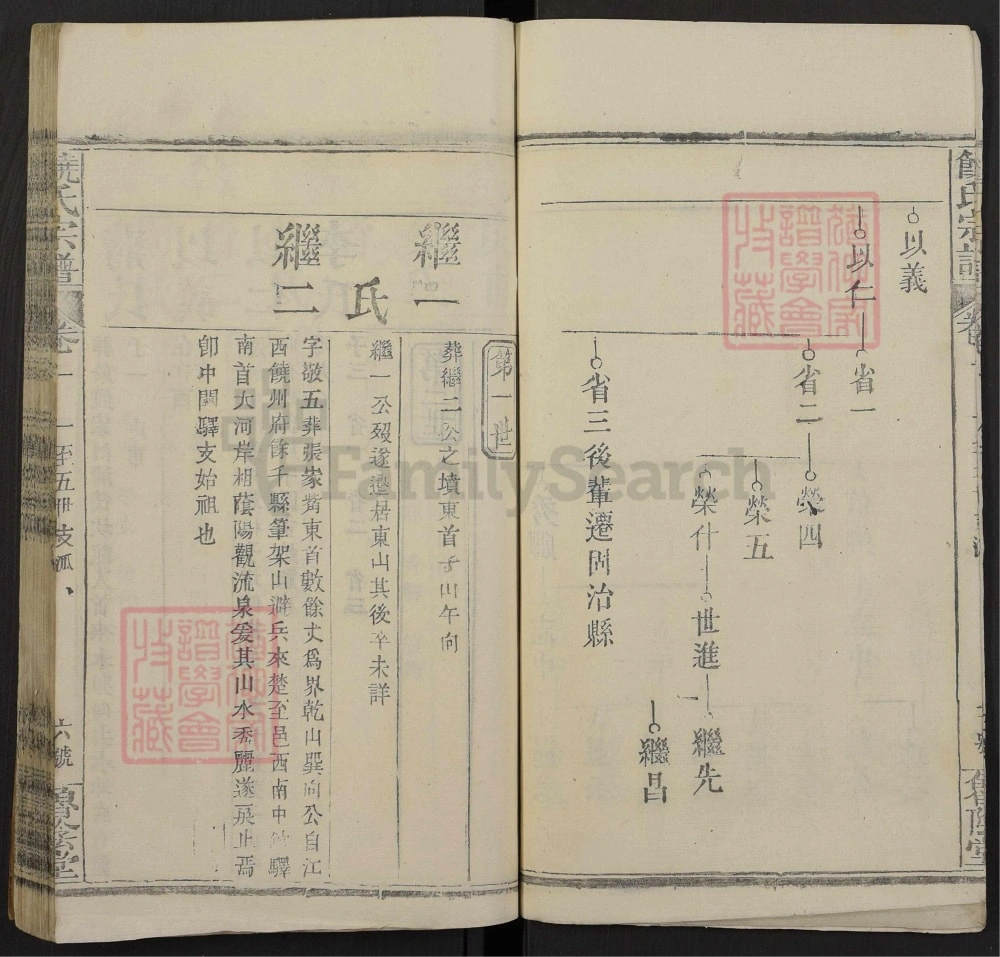 饒氏宗譜
以義
以仁
省一
省二
榮四
榮五
榮什
世進
繼先
繼昌
省三後輩遷固治縣
第一世
繼一
葬繼二公之墳東首子山午向
氏
繼一公歿遂遷居東山其後卒未詳
繼二
字敬五葬張家觜東首數餘丈爲界乾山巽向公自江
西饒州府餘千縣筆架山避兵來楚至邑西南中 驛
南首大河岸相蔭陽觀流泉爰其山水秀麗遂 止焉
卽中閞驛支始祖也
饒氏宗譜
卷一
一至五世支派
六號
譜學會
收藏
FamilySearch